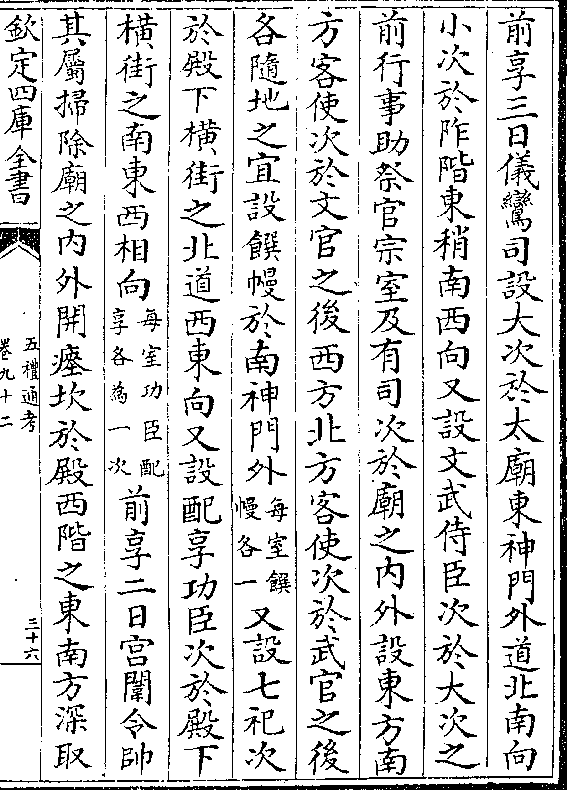 前享三日儀鸞司設大次於太廟東神門外道北南向
小次於阼階東稍南西向又設文武侍臣次於大次之
前行事助祭官宗室及有司次於廟之內外設東方南
方客使次於文官之後西方北方客使次於武官之後
各隨地之宜設饌幔於南神門外每室饌幔各一又設七祀次
於殿下橫街之北道西東向又設配享功臣次於殿下
橫街之南東西相向每室功臣配享各為一次前享二日宮闈令帥
其屬掃除廟之內外開瘞坎於殿西階之東南方深取
欽定四庫全書
五禮通考
卷九十二
三十六